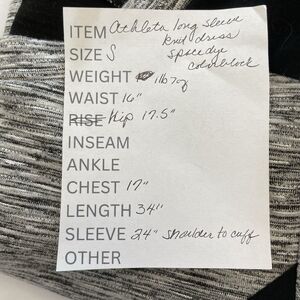 ITEM Athleta long sleeve
knit dress
SIZE S space dye
colorblock
WEIGHT 1lb 7oz
WAIST 16"
RISE Hip 17.5"
INSEAM
ANKLE
CHEST 17"
LENGTH 34"
SLEEVE 24" shoulder to cuff
OTHER